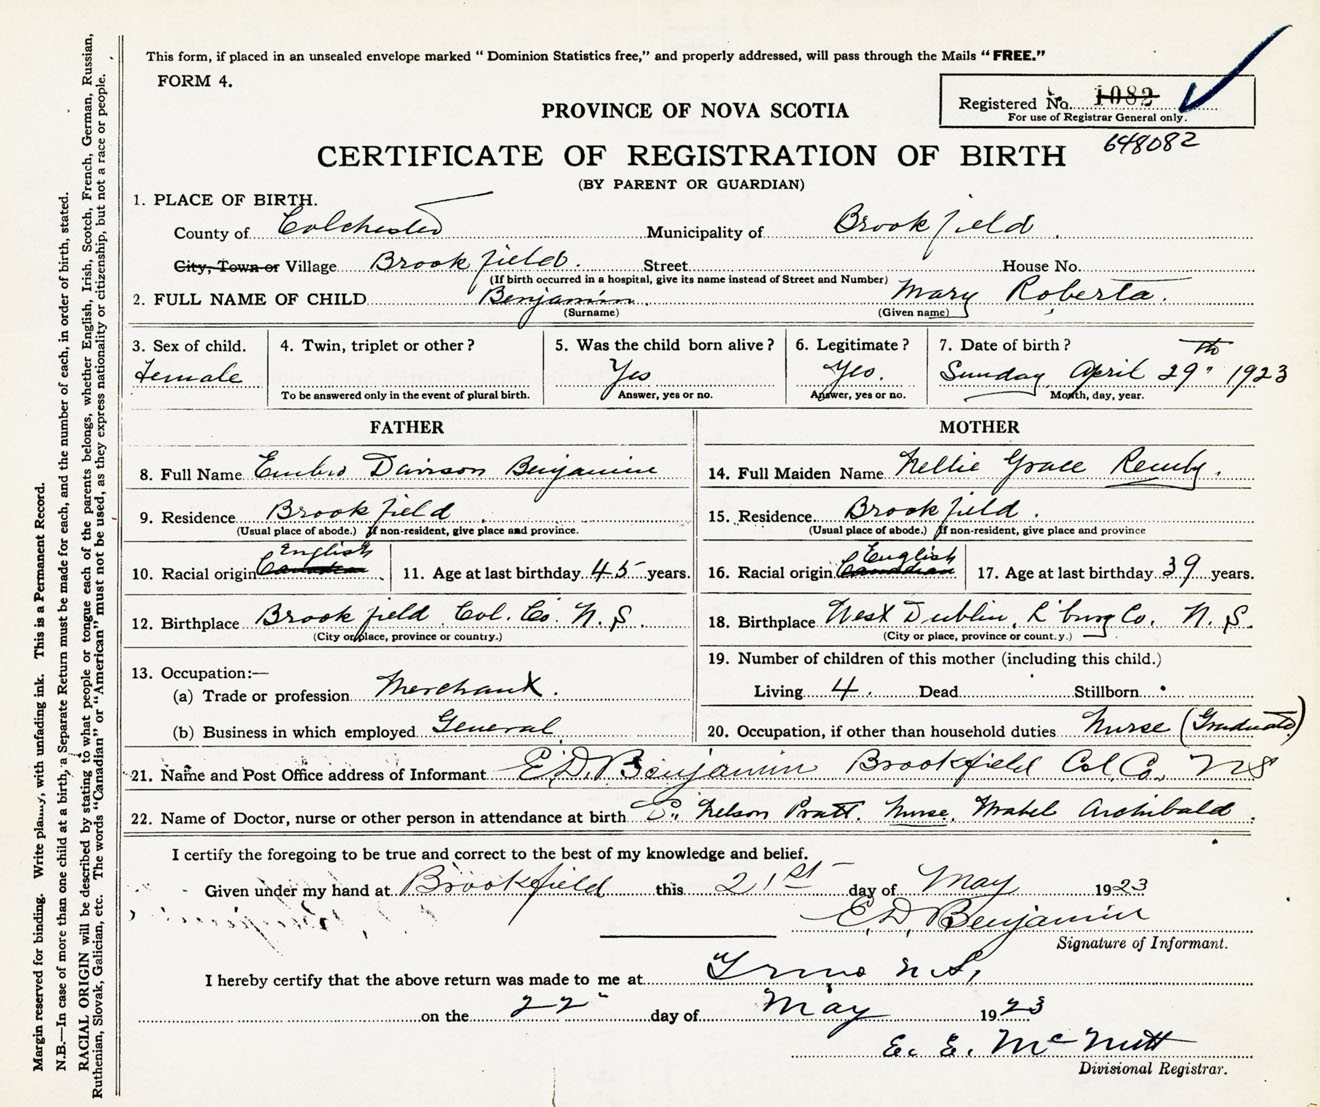 This form, if placed in an unsealed envelope marked “ Dominion Statistics free,” and properly addressed, will pass through the Mails “ FREE.”
FORM 4.
Registered No. 1082
For use of Registrar General only.
648082
PROVINCE OF NOVA SCOTIA
CERTIFICATE OF REGISTRATION OF BIRTH
(BY PARENT OR GUARDIAN)
1. PLACE OF BIRTH.
County of Colchester Municipality of Brookfield
City, Town or Village Brookfield. Street House No.
(If birth occurred in a hospital, give its name instead of Street and Number)
2. FULL NAME OF CHILD Benjamin Mary Roberta.
(Surname) (Given name)
3. Sex of child. 4. Twin, triplet or other ? 5. Was the child born alive ? 6. Legitimate ? 7. Date of birth ?
Female Yes Yes. Sunday April 29th 1923
To be answered only in the event of plural birth. Answer, yes or no. Answer, yes or no. Month, day, year.
FATHER MOTHER
8. Full Name Davison Benjamin 14. Full Maiden Name Nellie Grace
9. Residence Brookfield 15. Residence Brookfield.
(Usual place of abode.) If non-resident, give place and province. (Usual place of abode.) If non-resident, give place and province
10. Racial origin Canadian English 11. Age at last birthday 45 years. 16. Racial origin Canadian English 17. Age at last birthday 39 years.
12. Birthplace Brookfield Col. Co. N.S. 18. Birthplace West Dublin, L'burg Co. N.S.
(City or place, province or country.) (City or place, province or count.y.)
13. Occupation:— 19. Number of children of this mother (including this child.)
(a) Trade or profession Merchant. Living 4. Dead Stillborn
(b) Business in which employed General 20. Occupation, if other than household duties Nurse (Graduate)
21. Name and Post Office address of Informant E.D. Benjamin Brookfield Col. Co. NS
22. Name of Doctor, nurse or other person in attendance at birth Nelson Pratt. Nurse, Mabel Archibald.
I certify the foregoing to be true and correct to the best of my knowledge and belief.
Given under my hand at Brookfield this 21st day of May 1923
E.D. Benjamin
Signature of Informant.
I hereby certify that the above return was made to me at Truro N.S.
on the 22" day of May 1923
E. E. McNutt
Divisional Registrar.
Margin reserved for binding. Write plainly, with unfading ink. This is a Permanent Record.
N.B.—In case of more than one child at a birth, a Separate Return must be made for each, and the number of each, in order of birth, stated.
RACIAL ORIGIN will be described by stating to what people or tongue each of the parents belongs, whether English, Irish, Scotch, French, German, Russian,
Ruthenian, Slovak, Galician, etc. The words “Canadian” or “American” must not be used, as they express nationality or citizenship, but not a race or people.